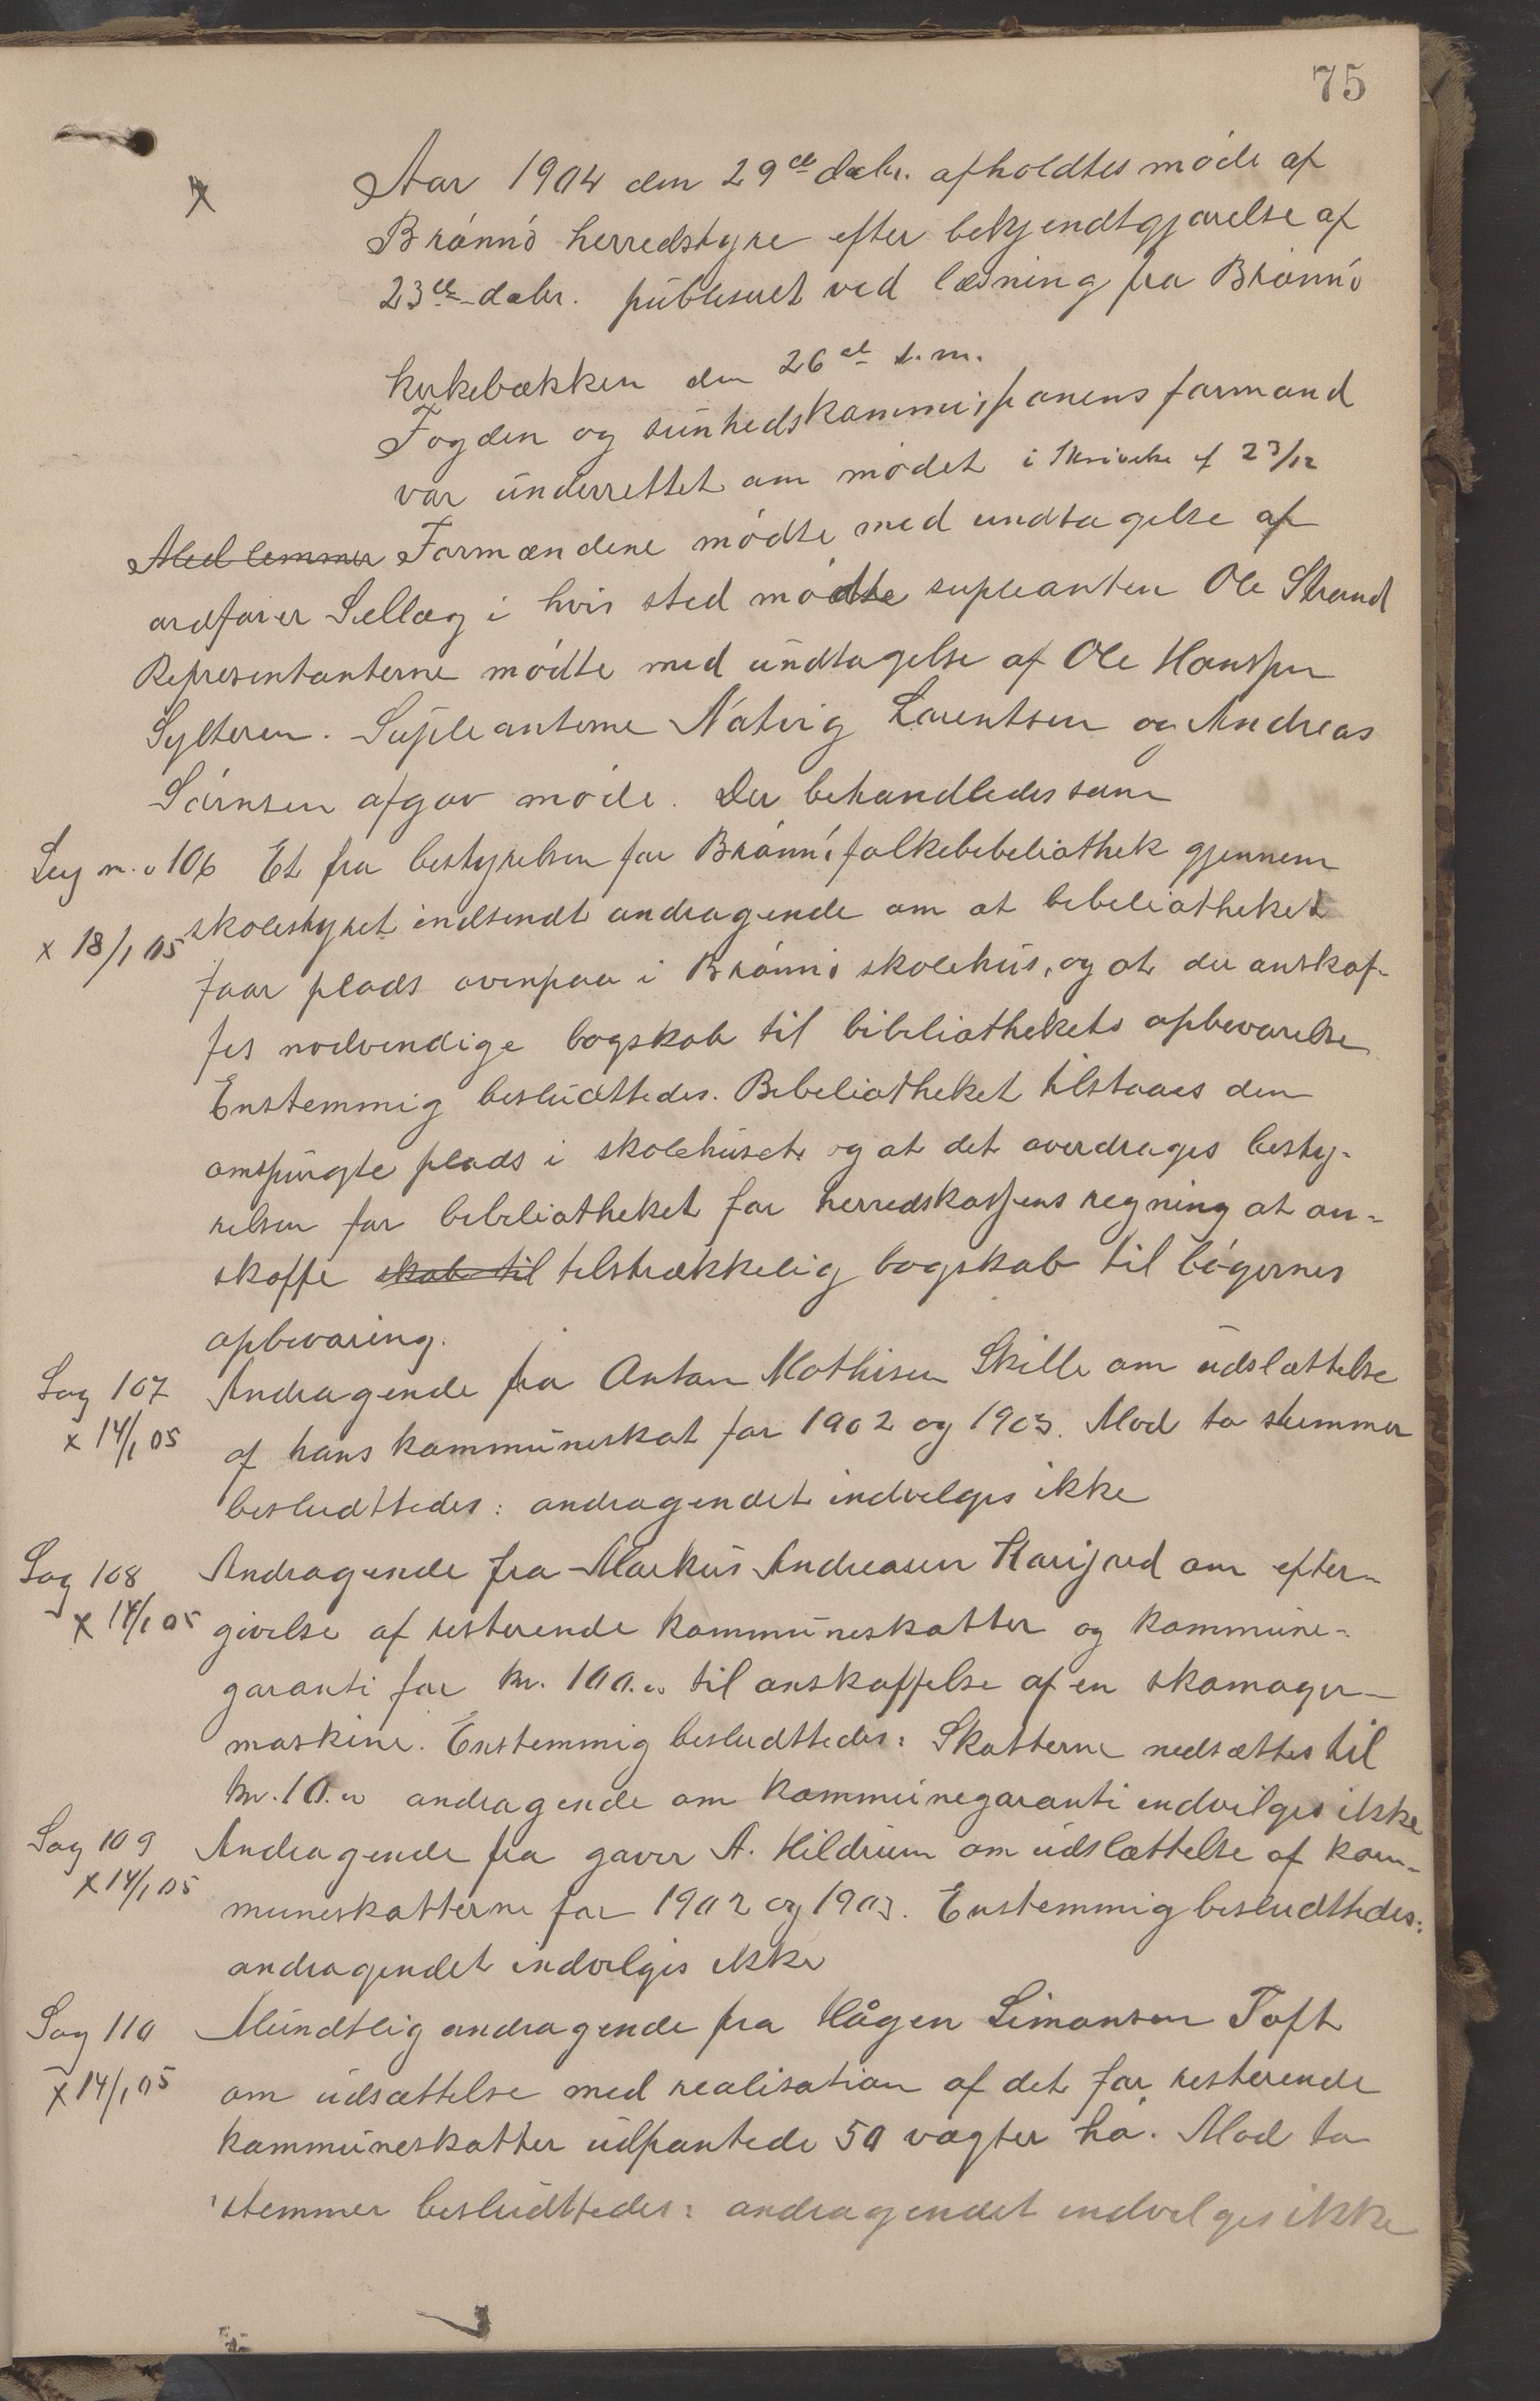 75
x
Aar 1904 den 29de decbr. afholdtes møde af
Brønnø herredstyre efter bekjendtgjørelse af
23de decbr. publiseret ved læsning fra Brønnø
kirkebakken den 26de s.m.
Fogden og sunhedskommisjonens formand
var underrettet om mødet i skrivelse af 23/12
Medlemmer Formændene mødte med undtagelse af
ordfører Sellæg i hvis sted mødte supleanten Ole Strand
Representanterne mødte med undtagelse af Ole Hanssen
Sylteren. Supleanterne Natvig Lorentsen og Andreas
Sørnsen afgav møde. Der behandledes som
Sag no 106 Et fra bestyrelsen for Brønnø folkebebeliothek gjennem
skolestyret indsendt andragende om at bebeliotheket
x 18/1 05
faar plads ovenpaa i Brønnø skolehus, og at der anskaf-
fes nødvendige bogskab til bibeliothekets opbevarelse
Enstemmig besludttedes. Bebeliotheket tilstaaes den
omspurgte plads i skolehuset og at det overdrages besty-
relsen for bebeliotheket for herredskassens regning at an-
skaffe skab til tilstrækkelig bogskab til bøgernes
opbevaring.
Sag 107 Andragende fra Anton Mathisen Skille om udslættelse
x 14/1 05 af hans kommuneskat for 1902 og 1903. Mod to stemmer
besludttedes: andragendet indvelges ikke
Sag 108 Andragende fra Markus Andreasen om efter-
x 14/1 05 givelse af resterende kommuneskatter og kommune-
garanti for kr. 100.00 til anskaffelse af en skomager-
maskine. Enstemmig besludttedes: Skatterne nedsættes til
kr. 10.00 andragende om kommunegaranti endvilges ikke
Sag 109 Andragende fra gaver A. Hildrum om udslættelse af kom-
x 14/1 05 muneskatterne for 1902 og 1903. Enstemmig besludttedes:
andragendet indvelges ikke
Sag 110 Mundtlig andragende fra Hågen Simonsen Toft
x 14/1 05 om udsættelse med realisation af det for resterende
kommuneskatter udpantede 50 vogter hø. Mod to
stemmer besludttedes: andragendet endvelges ikke